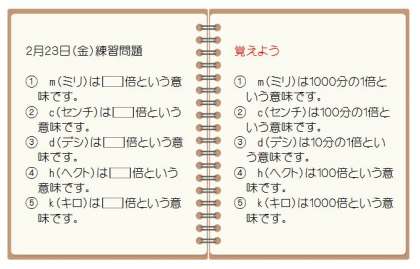 2月23日(金)練習問題
① m(ミリ)は□倍という意
味です。
② c(センチ)は□倍という
意味です。
③ d(デシ)は□倍という意
味です。
④ h(ヘクト)は□倍という
意味です。
⑤ k(キロ)は□倍という意
味です。
覚えよう
① m(ミリ)は1000分の1倍と
いう意味です。
② c(センチ)は100分の1倍と
いう意味です。
③ d(デシ)は10分の1倍とい
う意味です。
④ h(ヘクト)は100倍という意
味です。
⑤ k(キロ)は1000倍という意
味です。